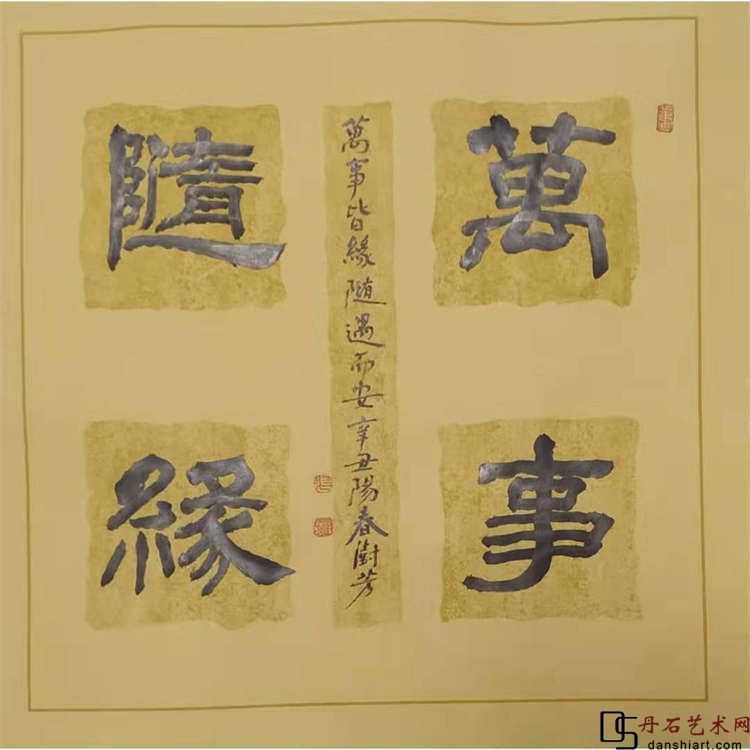 萬事
萬事皆緣随遇而安辛丑陽春芳
隨緣
DS
丹石艺术网
danshiart.com